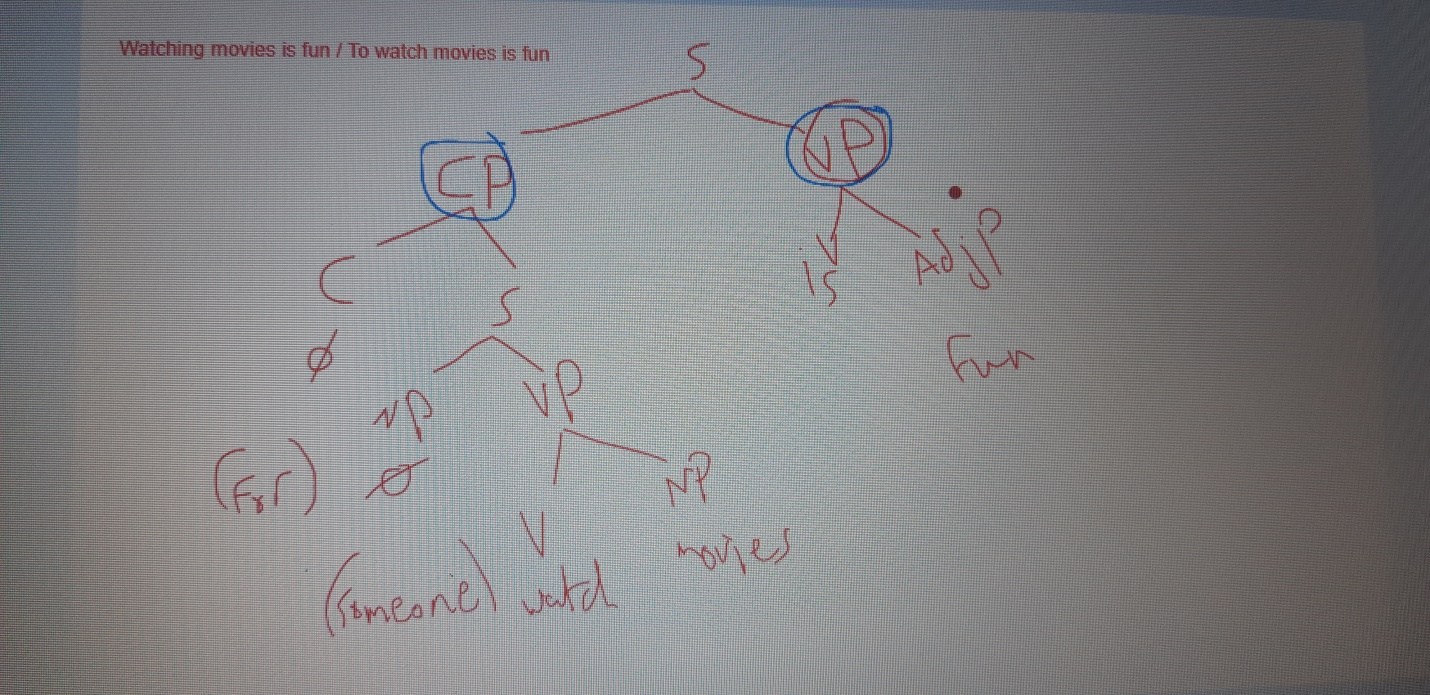 Watching movies is fun / To watch movies is fun
S
CP VP
C S V AdjP
is
Ø
NP VP Fun
(For) Ø V NP
(someone) watch movies